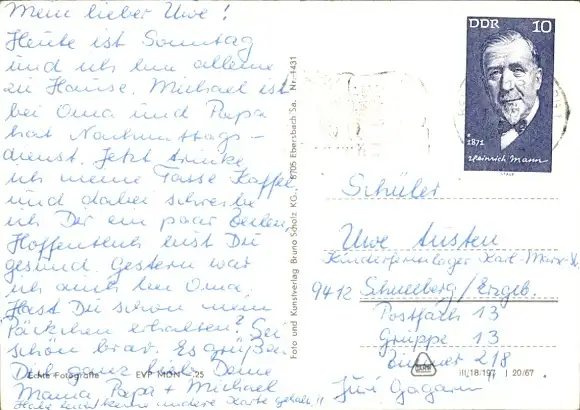 Mein lieber Uwe!
Heute ist Sonntag
und ich bin alleine
zu Hause. Michael ist
bei Oma und Papa
hat Nachmittags-
dienst. Jetzt trinke
ich meine Tasse Kaffee
und dabei schreibe
ich Dir ein paar Zeilen
Hoffentlich bist Du
gesund. Gestern war
ich auch bei Oma.
Hast Du schon mein
Päckchen erhalten? Sei
schön brav. Es grüßen
Dich ganz lieb Deine
Mama, Papa + Michael
Habe keine andere Karte gehabt!!
Echte Fotografie EVP MDN -,25
Foto und Kunstverlag Bruno Scholz KG., 8705 Ebersbach Sa. Nr. 1431
DDR 10
* 1871
Heinrich Mann
Schüler
Uwe Austen
Kinderferienlager Karl-Marx-St.
9412 Schneeberg/Erzgeb.
Postfach 13
Gruppe 13
Zimmer 218
III/18/197 J 20/67
Juri Gagarin